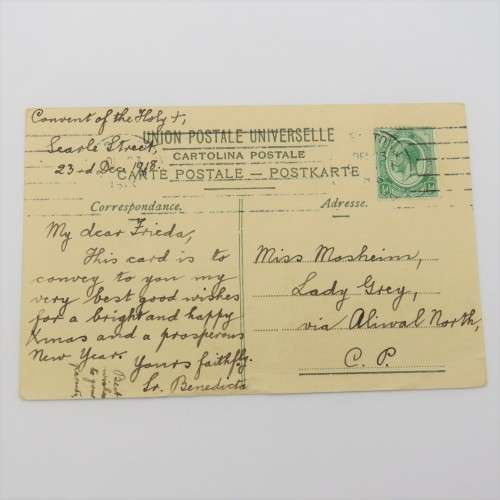 Convent of the Holy +,
Searle Street,
23rd Dec 1918.
UNION POSTALE UNIVERSELLE
CARTOLINA POSTALE
CARTE POSTALE — POSTKARTE
Correspondance.
Adresse.
My dear Frieda,
This card is to
convey to you my
very best good wishes
for a bright and happy
Xmas and a prosperous
New Year.
Yours faithfully
Sr. Benedicta
Best
wishes
to your
Miss Mosheim,
Lady Grey,
via Aliwal North,
C. P.